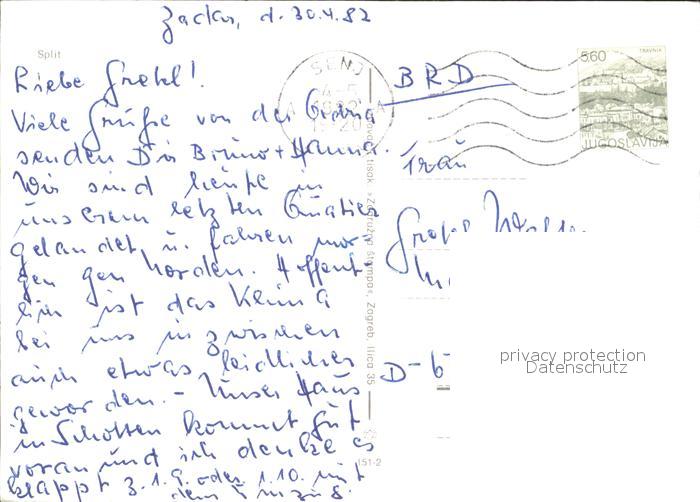 d. 30.4.82
Split
Liebe Gretl!
Viele Grüße von der
senden Dir Bruno + Hanna.
Wir sind heute in
unserem letzten Quatier
gelandet u. fahren mor-
gen gen Norden. Hoffent-
lich ist das Klima
bei uns inzwischen
auch etwas leidlicher
geworden. - Unser Haus
in Schotten kommt gut
voran und ich denke es
klappt z. 1.9. oder 1.10. mit
dem
SENJ
BRD
Frau
D-6
5.60
TRAVNIK
JUGOSLAVIJA
Zagreb, Ilica 35
151-2
privacy protection
Datenschutz